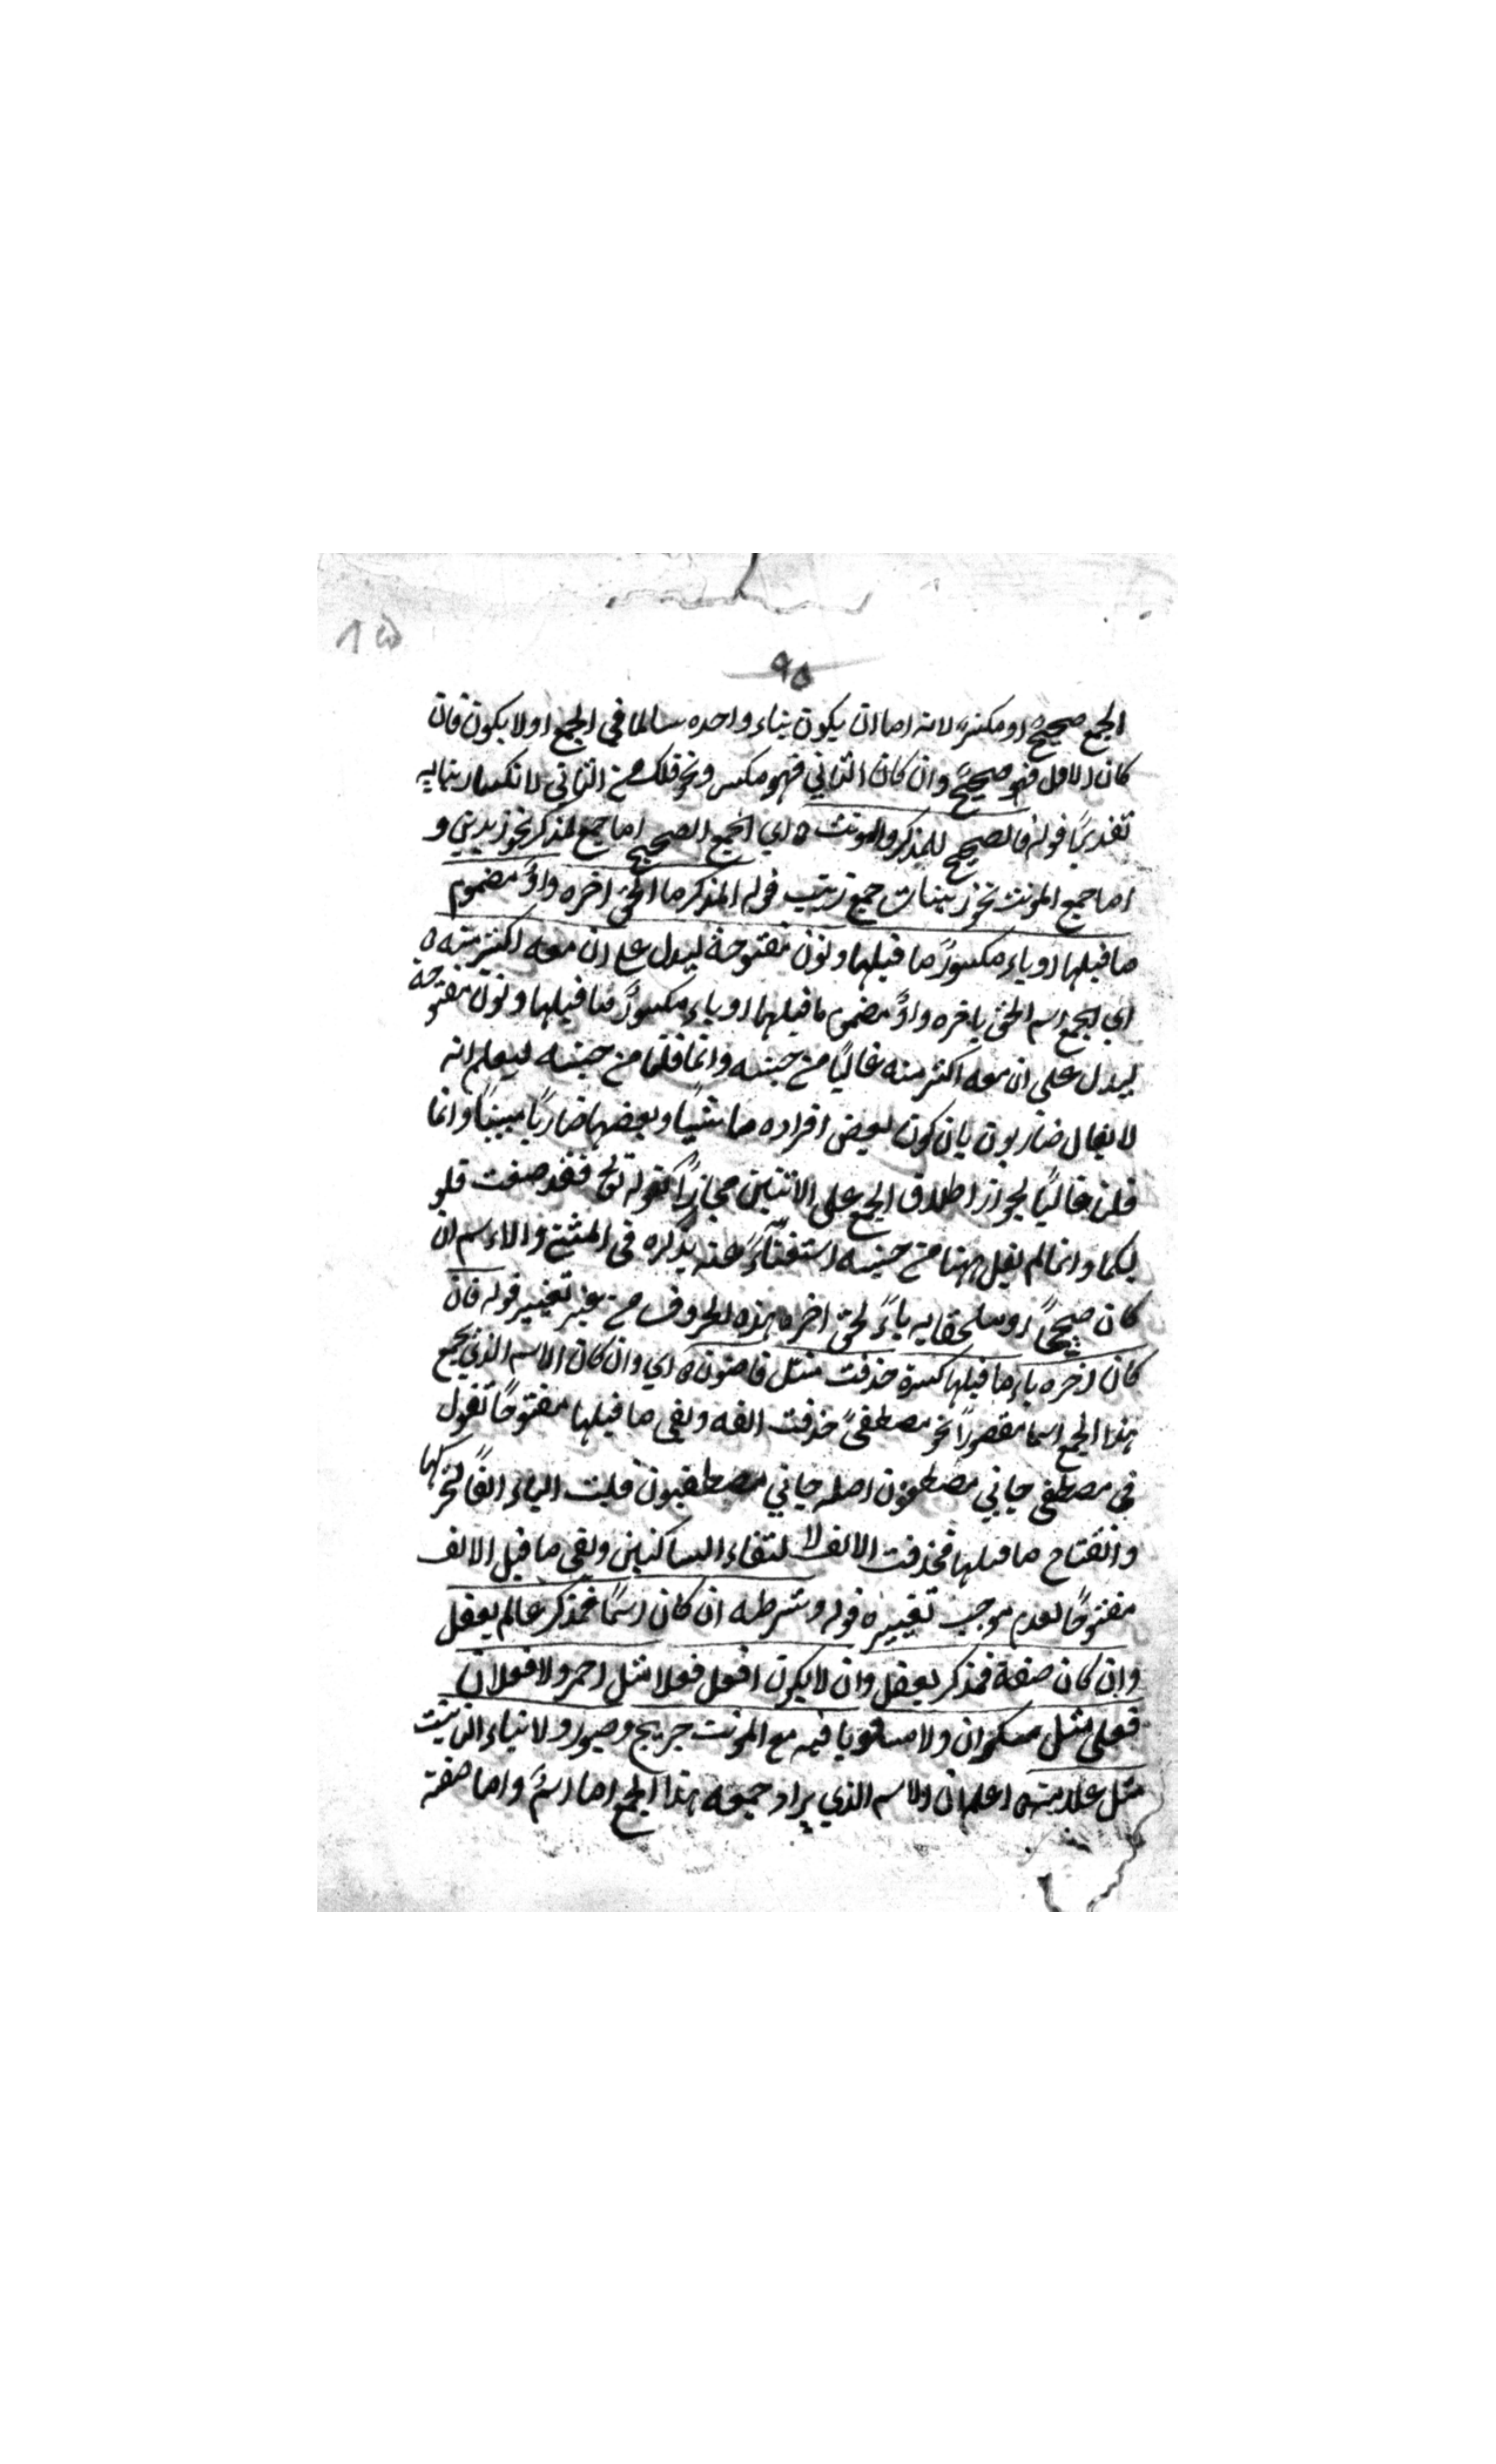 ٩٥
الجمع صحيح او مكسر لانه اما ان يكون بناء واحده سالما في الجمع او لا يكون فان
كان الاول فهو صحيح وان كان الثاني فهو مكسر ونحو فلك من الثاني لانكسار بنايه
تقديرًا قوله فالصحيح للمذكر والمونث ه اي الجمع الصحيح اما جمع المذكر نحو زيدين و
اما جمع المونث نحو زينبات جمع زينب قوله المذكر ما الحق اخره واوٌ مضموم
ما قبلها او ياء مكسورٌ ما قبلها ونون مفتوحة ليدل على ان معه اكثر منه ه
اي الجمع اسم الحق باخره واوٌ مضموم ما قبلها او ياء مكسورٌ ما قبلها ونون مفتوحة
ليدل على ان معه اكثر منه غالبًا من جنسه وانما قلنا من جنسه ليعلم انه
لا يقال ضاربون بان كون بعض افراده ماشيًا وبعضها ضاربًا مبينًا وانما
قلنا غالبًا لجواز اطلاق الجمع على الاثنين مجازًا كقوله تع فقد صغت قلو
بكما وانما لم يقل ههنا من جنسه استغناءً عنه بذكره في المثنى والاسم ان
كان صحيحًا او ملحقا به ياءً لحق اخره هذه الحروف من غير تغيير قوله فان
كان اخره ياء ما قبلها كسرة حذفت مثل قاضون ه اي وان كان الاسم الذي يجمع
هذا الجمع اسما مقصورًا نحو مصطفىً حذفت الفه وبقى ما قبلها مفتوحًا تقول
في مصطفى جاني مصطفون اصله جاني مصطفيون قلبت الياء الفًا لتحركها
وانفتاح ما قبلها فحذفت الالف لا لتقاء الساكنين وبقى ما قبل الالف
مفتوحًا لعدم موجب تغييره قوله وشرطه ان كان اسمًا فمذكر عالم يعقل
وان كان صفة فمذكر يعقل وان لا يكون افعل فعلا مثل احمر ولا فعلان
فعلى مثل سكران ولا مستويا فيه مع المونث جريح وصبور ولا بتاء التانيث
مثل علامة ه اعلم ان الاسم الذي يراد جمعه هذا الجمع اما اسمٌ واما صفة